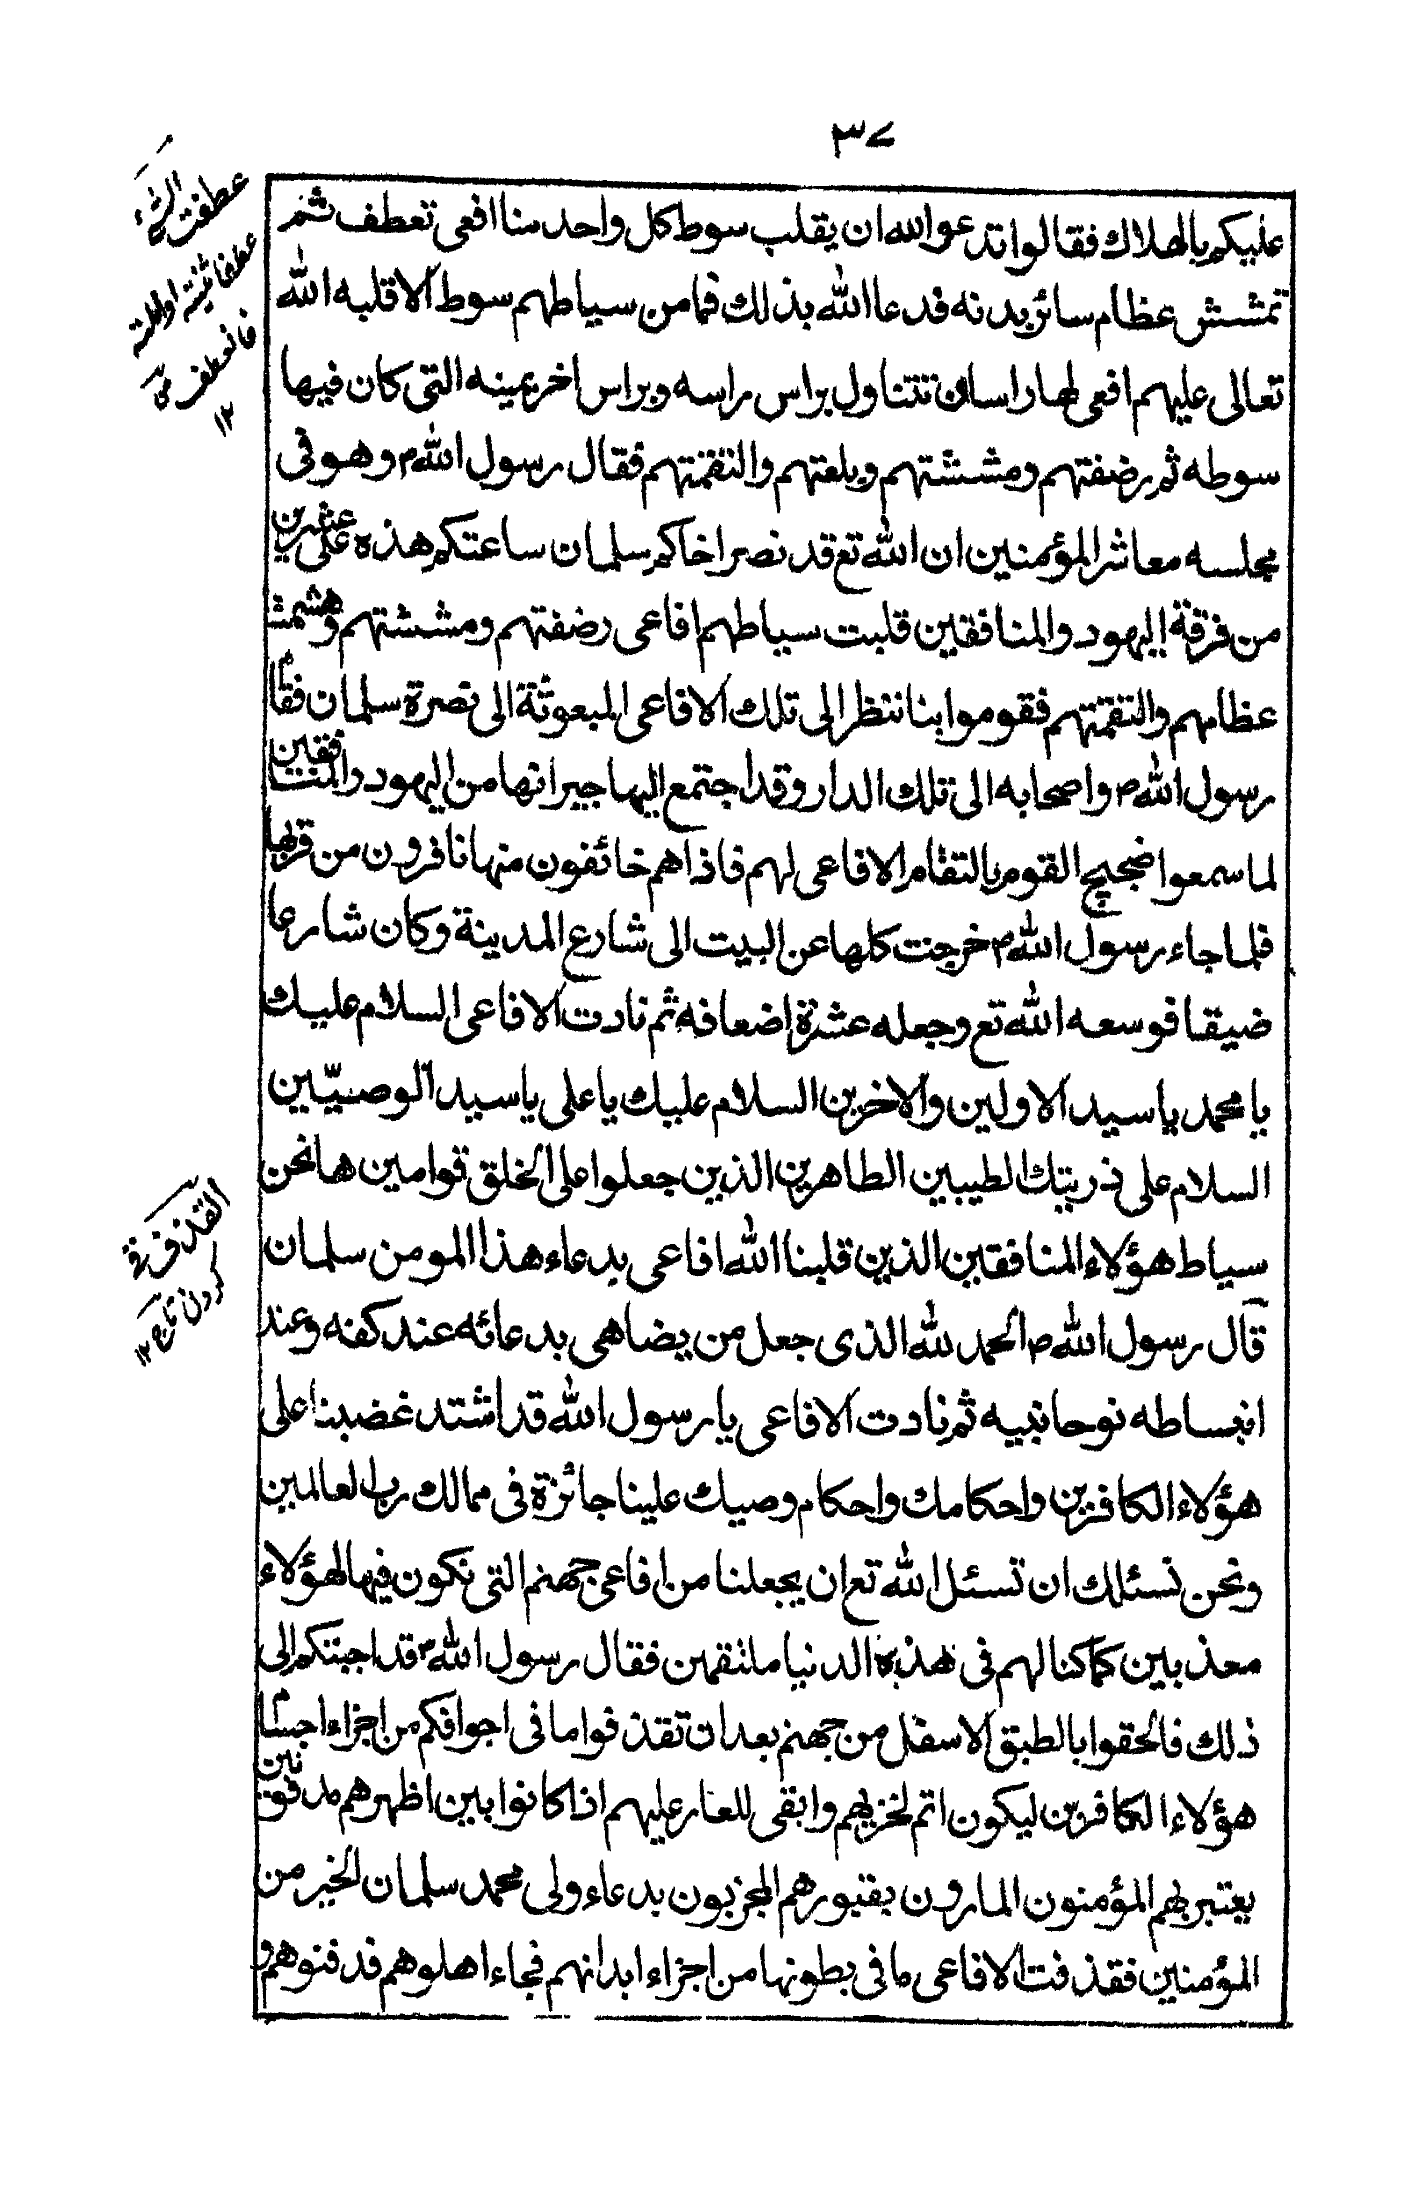 ٣٧
عليكم بالهلاك فقالوا تدعو الله ان يقلب سوط كل واحد منا افعى تعطف ثم
تمشش عظام سائر بدنه فدعا الله بذلك فما من سياطهم سوط الا قلبه الله
تعالى عليهم افعى لها راسان تتناول براس راسه وبراس اخر يمينه التى كان فيها
سوطه ثم رضضتهم ومششتهم وبلعتهم والتقمتهم فقال رسول الله ص وهو فى
مجلسه معاشر المؤمنين ان الله تع قد نصر اخاكم سلمان ساعتكم هذه على عشرين
من فرقة اليهود والمنافقين قلبت سياطهم افاعى رضضتهم ومششتهم وهشمت
عظامهم والتقمتهم فقوموا بنا ننظر الى تلك الافاعى المبعوثة الى نصرة سلمان فقام
رسول الله ص واصحابه الى تلك الدار وقد اجتمع اليها جيرانها من اليهود والمنافقين
لما سمعوا ضجيج القوم بالتقام الافاعى لهم فاذا هم خائفون منها نافرون من قربها
فلما جاء رسول الله ص خرجت كلها عن البيت الى شارع المدينة وكان شارعا
ضيقا فوسعه الله تع وجعله عشرة اضعافه ثم نادت الافاعى السلام عليك
يا محمد يا سيد الاولين والاخرين السلام عليك يا على يا سيد الوصيّين
السلام على ذريتك الطيبين الطاهرين الذين جعلوا على الخلق قوامين ها نحن
سياط هؤلاء المنافقين الذين قلبنا الله افاعى بدعاء هذا المومن سلمان
قال رسول الله ص الحمد لله الذى جعل من يضاهى بدعائه عند كفه وعند
انبساطه نوحا نبيه ثم نادت الافاعى يا رسول الله قد اشتد غضبنا على
هؤلاء الكافرين واحكامك واحكام وصيك علينا جائزة فى ممالك رب العالمين
ونحن نسئلك ان تسئل الله تع ان يجعلنا من افاعى جهنم التى نكون فيها لهؤلاء
معذبين كما كنا لهم فى هذه الدنيا ملتقمين فقال رسول الله ص قد اجبتكم الى
ذلك فالحقوا بالطبق الاسفل من جهنم بعد ان تقذفوا ما فى اجوافكم من اجزاء اجسام
هؤلاء الكافرين ليكون اتم لخزيهم وابقى للعار عليهم اذا كانوا بين اظهرهم مدفونين
يعتبر بهم المؤمنون المارون بقبورهم المجزبون بدعاء ولى محمد سلمان الخير من
المؤمنين فقذفت الافاعى ما فى بطونها من اجزاء ابدانهم فجاء اهلوهم فدفنوهم و
عطفت الشىء
عطفا ثنيته او املته
فانعطف
١٢
القذف رقى
كردن تاج ١٢